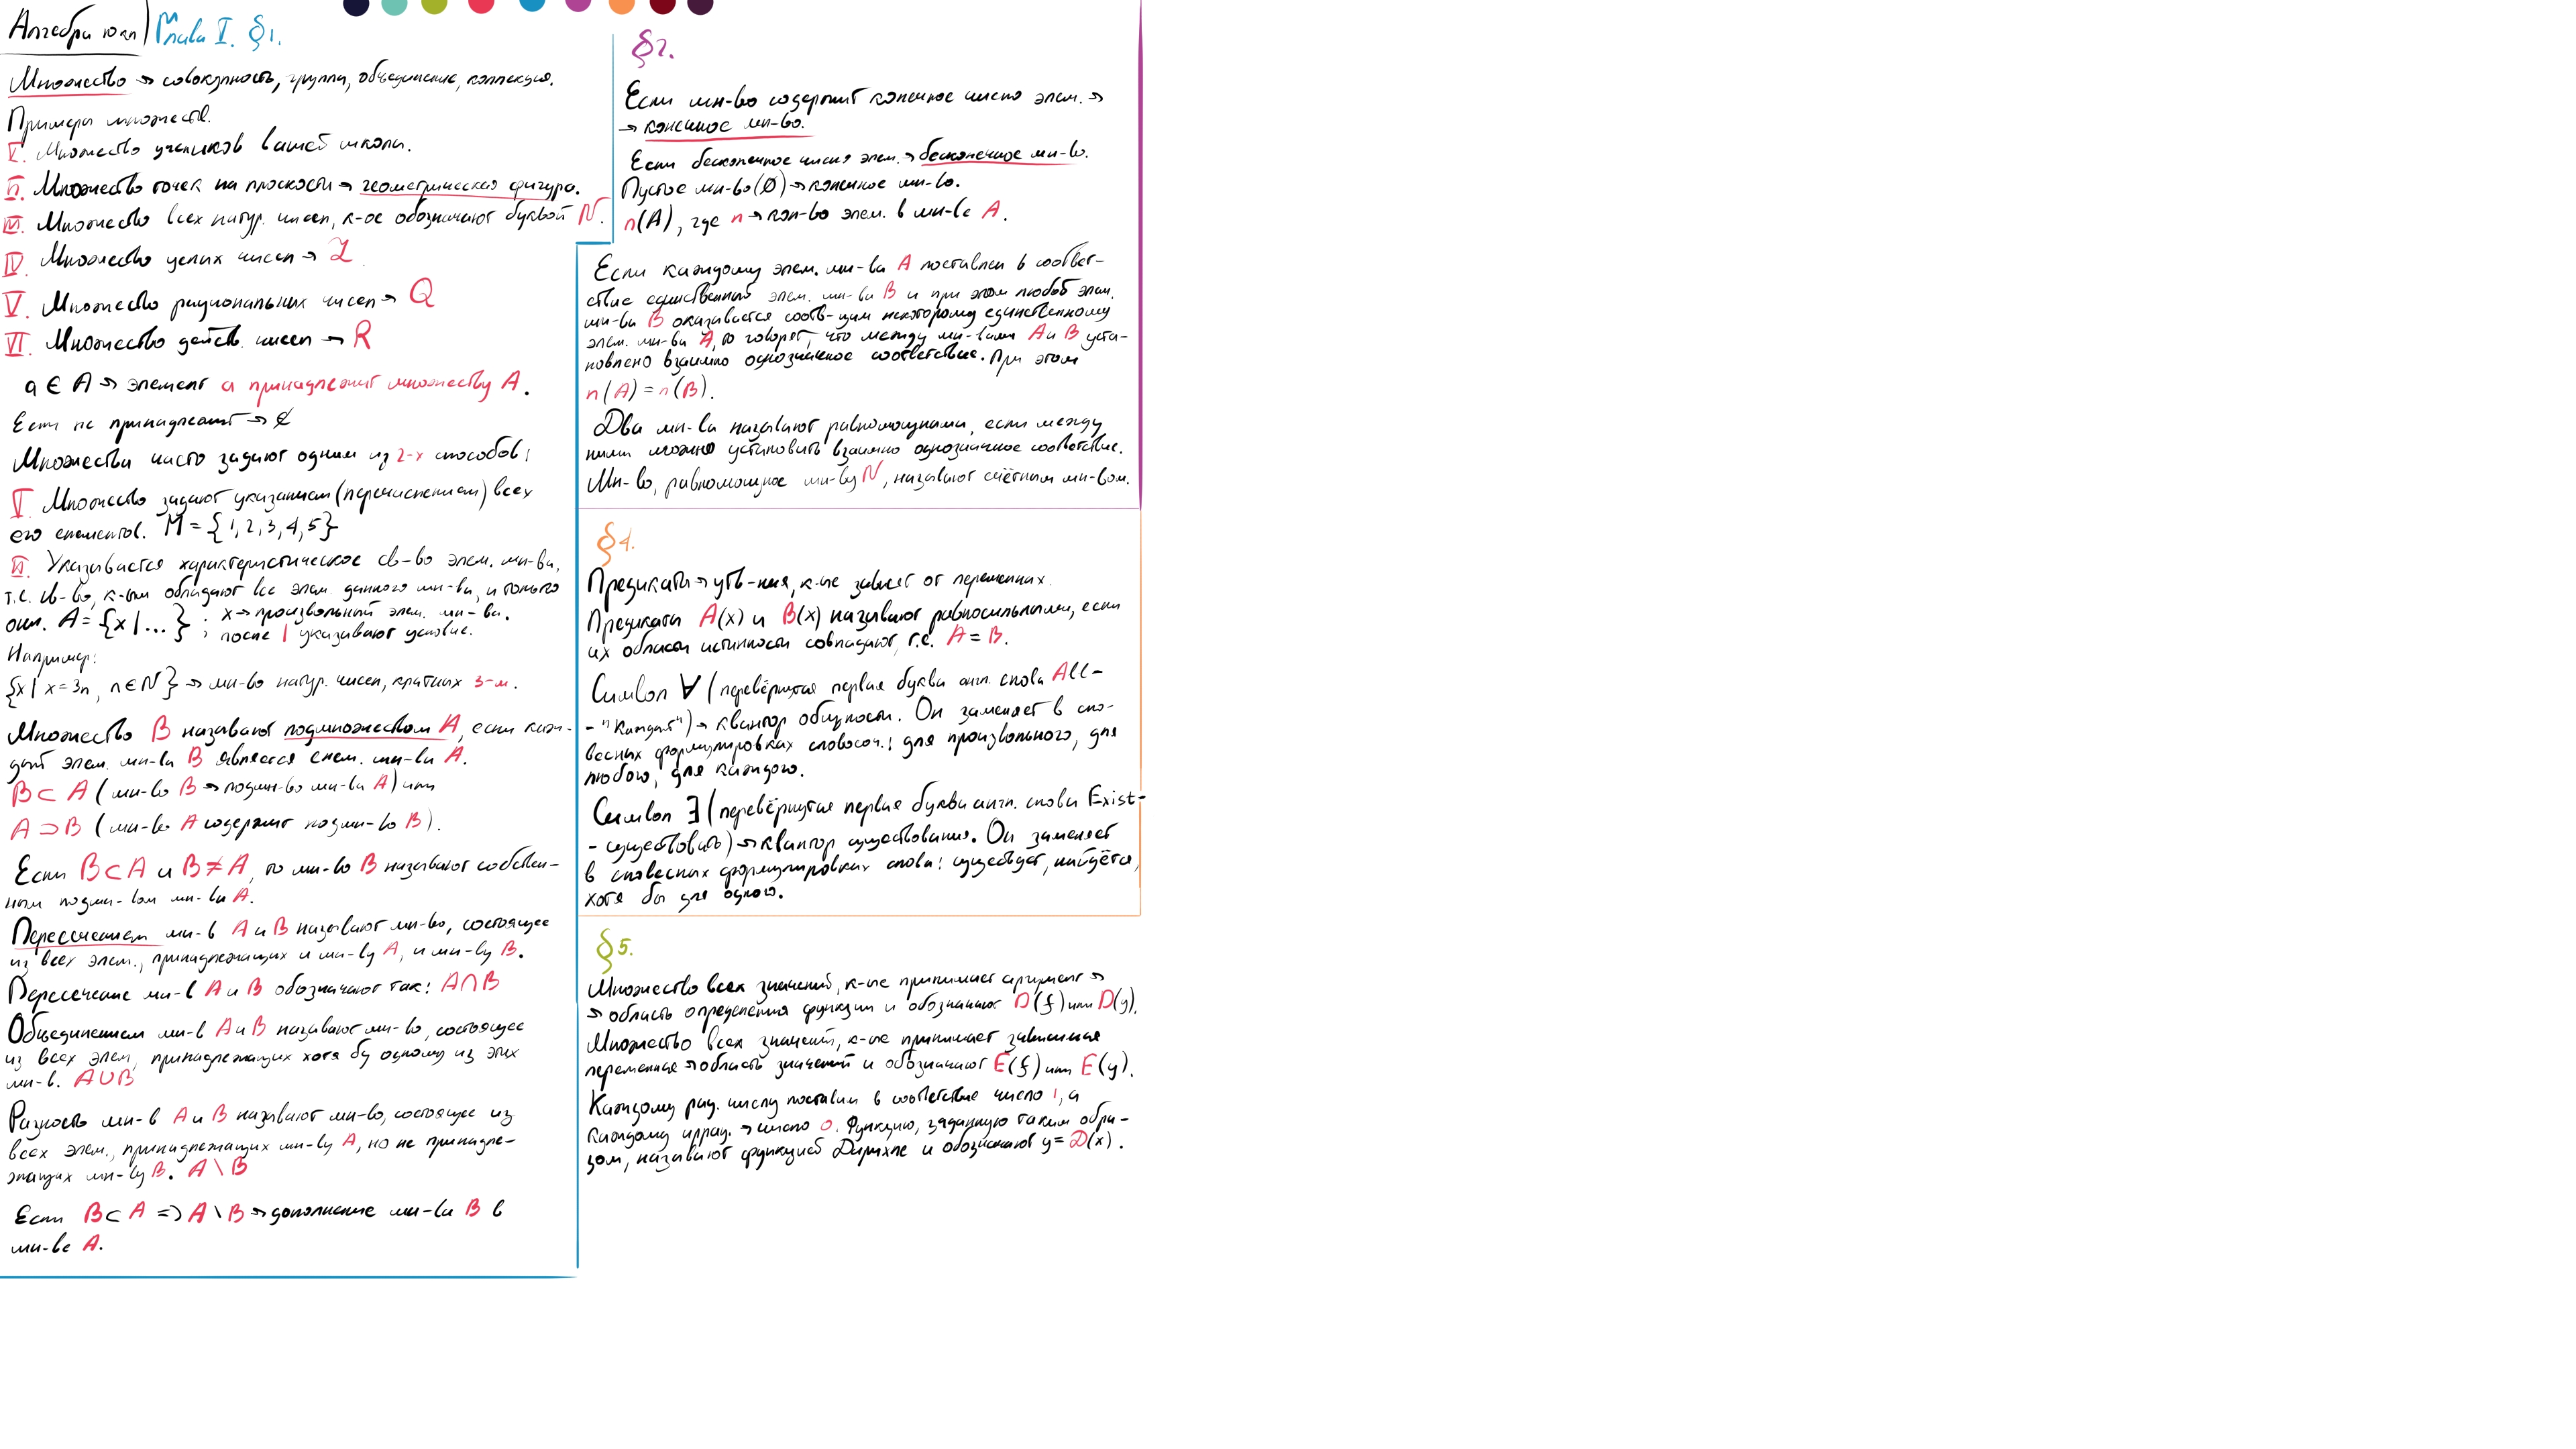 Алгебра 10 кл Глава I. §1.
Множество → совокупность, группа, объединение, коллекция.
Примеры множеств.
I. Множество учеников вашей школы.
II. Множество точек на плоскости → геометрическая фигура.
III. Множество всех натур. чисел, к-ое обозначают буквой N.
IV. Множество целых чисел → Z
V. Множество рациональных чисел → Q
VI. Множество действ. чисел → R
a ∈ A → элемент a принадлежит множеству A.
Если не принадлежит → ∉
Множества часто задают одним из 2-х способов:
I Множество задают указанием (перечислением) всех
его елементов. M = {1, 2, 3, 4, 5}
II. Указывается характеристическое св-во элем. мн-ва,
т.е. св-во, к-ым обладают все элем. данного мн-ва, и только
они. A = {x | ...} ; x → произвольный элем. мн-ва.
; после | указывают условие.
Например:
{x | x = 3n, n ∈ N} → мн-во натур. чисел, кратных 3-м.
Множество B называют подмножеством A, если каж-
дый элем. мн-ва B является елем. мн-ва A.
B ⊂ A (мн-во B → подмн-во мн-ва A) или
A ⊃ B (мн-во A содержит подмн-во B).
Если B ⊂ A и B ≠ A, то мн-во B называют собствен-
ным подмн-вом мн-ва A.
Пересечением мн-в A и B называют мн-во, состоящее
из всех элем., принадлежащих и мн-ву A, и мн-ву B.
Пересечение мн-в A и B обозначают так: A ∩ B
Объединением мн-в A и B называют мн-во, состоящее
из всех элем, принадлежащих хотя бу одному из этих
мн-в. A ∪ B
Разность мн-в A и B называют мн-во, состоящее из
всех элем., принадлежащих мн-ву A, но не принадле-
жащих мн-ву B. A \ B
Если B ⊂ A => A \ B → дополнение мн-ва B в
мн-ве A.
§2.
Если мн-во содержит конечное число элем. →
→ конечное мн-во.
Если бесконечное число элем. → бесконечное мн-во.
Пустое мн-во (∅) → конечное мн-во.
n(A), где n → кол-во элем. в мн-ве A.
Если каждому элем. мн-ва A поставлен в соответ-
ствие единственный элем. мн-ва B и при этом любой элем.
мн-ва B оказывается соотв-щим некоторому единственному
элем. мн-ва A, то говорят, что между мн-вами A и B уста-
новлено взаимно однозначное соответствие. При этом
n(A) = n(B).
Два мн-ва называют равномощными, если между
ними можно установить взаимно однозначное соответствие.
Мн-во, равномощное мн-ву N, называют счётным мн-вом.
§4.
Предикаты → утв-ния, к-ые зависят от переменных.
Предикаты A(x) и B(x) называют равносильными, если
их области истинности совпадают, т.е. A = B.
Символ ∀ (перевёрнутая первая буква англ. слова All-
- "Каждый") → квантор общности. Он заменяет в сло-
весных формулировках словосоч.: для произвольного, для
любого, для каждого.
Символ ∃ (перевёрнутая первая буква англ. слова Exist-
- существовать) → квантор существования. Он заменяет
в словесных формулировках слова: существует, найдётся,
хотя бы для одного.
§5.
Множество всех значений, к-ые принимает аргумент →
→ область определения функции и обозначают D(f) или D(y).
Множество всех значений, к-ые принимает зависимая
переменная → область значений и обозначают E(f) или E(y).
Каждому рац. числу поставим в соответствие число 1, а
каждому иррац. → число 0. Функцию, заданную таким обра-
зом, называют функцией Дирихле и обозначают y = D(x).